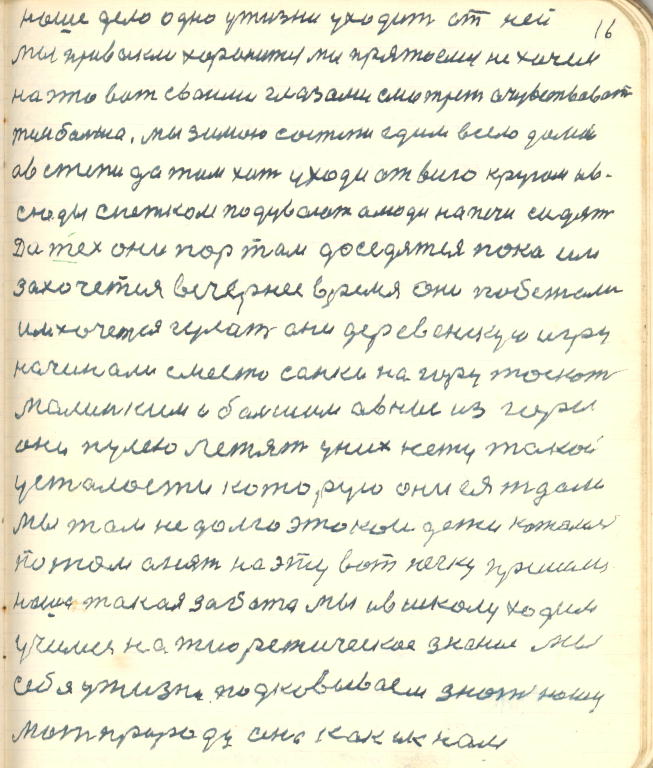 наше дело одно у жизни уходит от ней
16
мы привыкли хоронит мы прятоем не хочем
на это вот своими глазами смотрет а чувствоват
тем болша. мы зимою состепи едим всело домой
ов степи да там хот уходи от ниго кругом ив-
сюды снежком подуваот а люди на печи сидят
Да тех они пор там доседятся пока им
захочется вечернее время они побежали
им хочется гулят они деревенскую игру
начинали сместо санки на гору тоскот
малинким и балшим авные из горы
они пулею летят у них нету такой
усталости которую они ея ждали
мы там недолго этокои дети кожами
потом опят на эту вот печку пришли
наша такая забота мы ив школу ходим
учимся на тиоретическое знание мы
себя у жизни подковываем знат нашу
мат природу она как ик нам